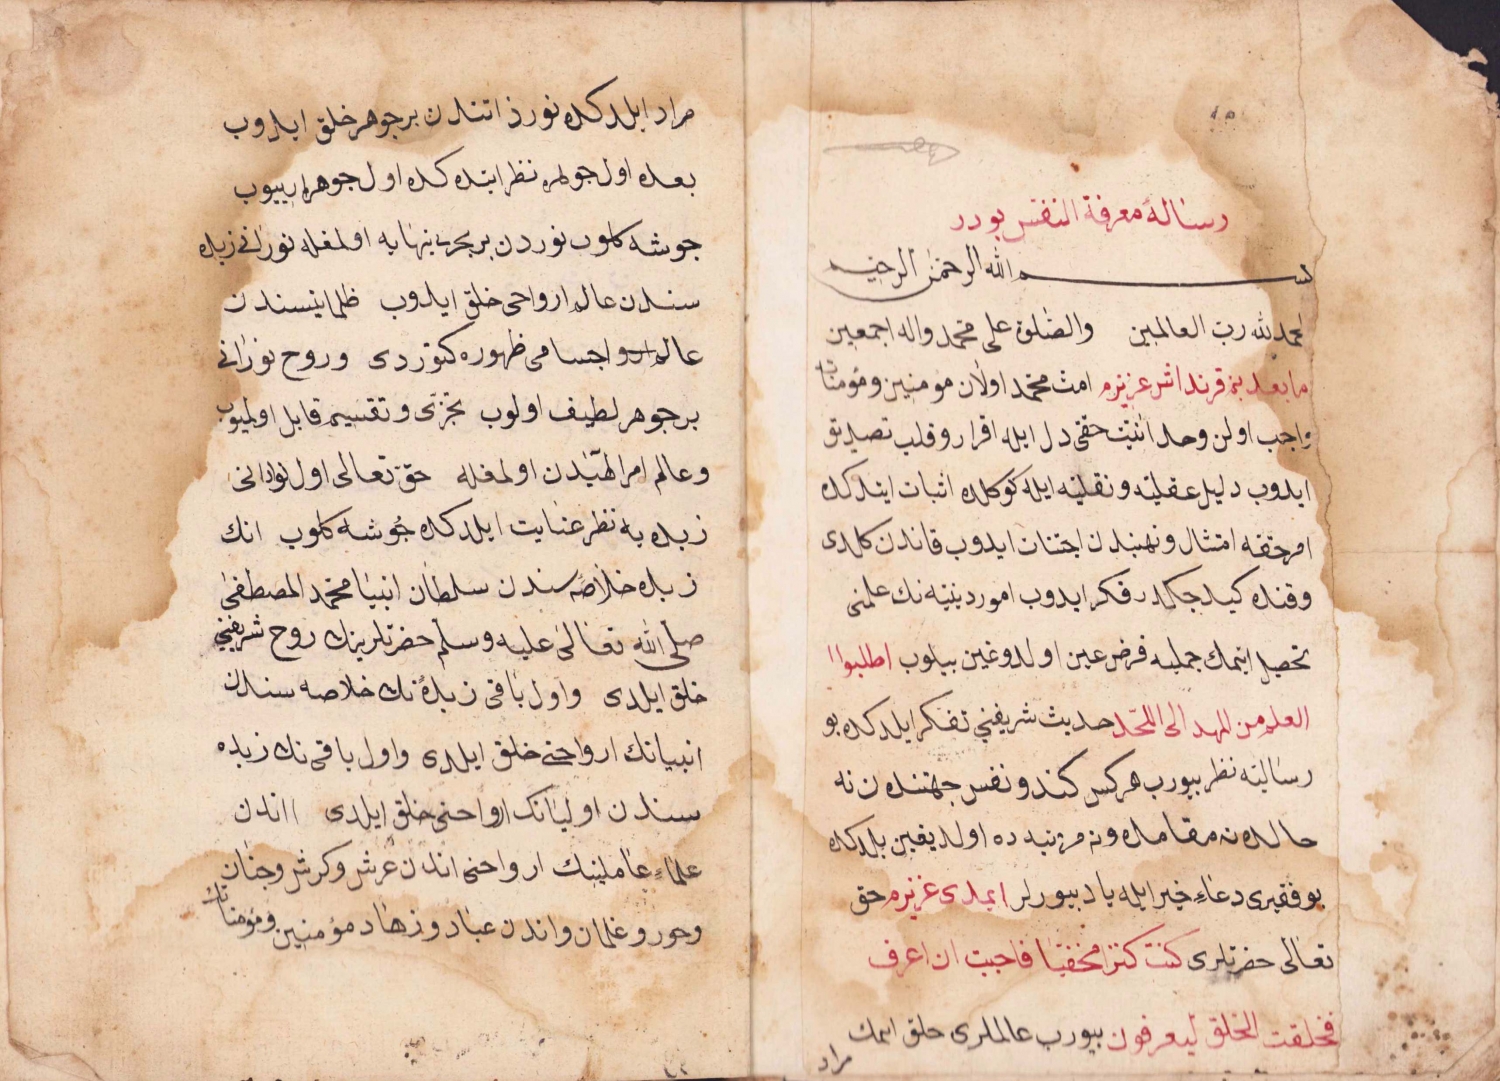 رسالهٔ معرفة النفس بودر
بسم الله الرحمن الرحيم
لحمد لله رب العالمين والصلوة على محمد واله اجمعين
ما بعد بنم قرنداش عزيزم امت محمد اولان مومنين ومؤمناته
واجب اولن وحدانيت حقى دل ايله اقرار وقلب تصديق
ايدوب دليل عقليه ونقليه ايله كوكلده اثبات ايتدكده
امر حقه امتثال ونهيندن اجتناب ايدوب قاندن كلدى
وقنده كيدجكدر فكر ايدوب امور دينيه نك علمنى
تحصيل ايتمك جمليه فرض عين اولدوغين بيلوب اطلبوا
العلم من المهد الى اللحد حديث شريفنى تفكر ايلدكده بو
رسالهيه نظر بيورب هركس كندو نفس جهتندن نه
حالده نه مقامده ونه مرتبه ده اولديغين بلدكده
بو فقيرى دعاء خير ايله ياد بيورلر ايمدى عزيزم حق
تعالى حضرتلرى كنت كنزا مخفيا فاحببت ان اعرف
فخلقت الخلق ليعرفون بيورب عالملرى خلق اتمك
مراد
مراد ايلدكده نور ذاتندن بر جوهر خلق ايدوب
بعده اول جوهره نظر ايتدكده اول جوهر اريوب
جوشه كلوب نوردن بر بحر بى نهايه اولمغله نورانى زبده
سندن عالم ارواحى خلق ايدوب ظلمانيسندن
عالم اجسامى ظهوره كتوردى وروح نورانى
بر جوهر لطيف اولوب تجزى وتقسيم قابل اولميوب
وعالم امر الهيدن اولمغله حق تعالى اول نورانى
زبده يه نظر عنايت ايلدكده جوشه كلوب انك
زبده خلاصه سندن سلطان انبيا محمد المصطفى
صلى الله تعالى عليه وسلم حضرتلرينك روح شريفنى
خلق ايلدى واول باقى زبده نك خلاصه سندن
انبيانك ارواحنى خلق ايلدى واول باقى نك زبده
سندن اوليانك ارواحنى خلق ايلدى اندن
علماء عاملينك ارواحنى اندن عرش وكرش وجنان
وحور وغلمان واندن عباد وزهاد مؤمنين ومؤمناتك